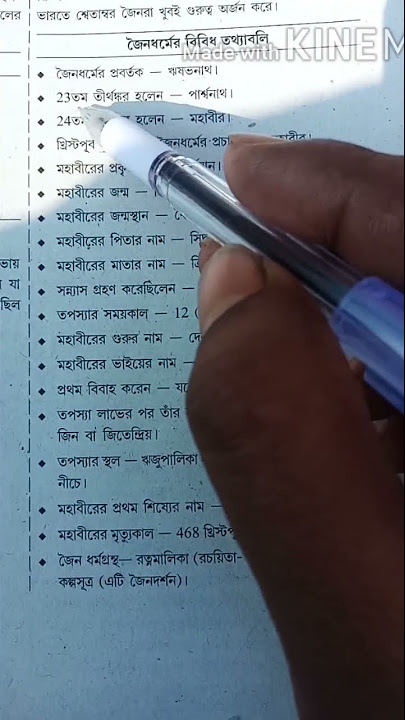 লের
ভারতে শ্বেতাম্বর জৈনরা খুবই গুরুত্ব অর্জন করে।
জৈনধর্মের বিবিধ তথ্যাবলি
Made with KINEM
◆ জৈনধর্মের প্রবর্তক — ঋষভনাথ।
◆ 23তম তীর্থঙ্কর হলেন — পার্শ্বনাথ।
◆ 24ত হলেন — মহাবীর।
◆ খ্রিস্টপূর্ব জৈনধর্মের
◆ মহাবীরের
◆ মহাবীরের জন্ম —
◆ মহাবীরের জন্মস্থান —
◆ মহাবীরের পিতার নাম —
ভায়
◆ মহাবীরের মাতার নাম —
যা
◆ সন্ন্যাস গ্রহণ করেছিলেন —
ছিল
◆ তপস্যার সময়কাল — 12
◆ মহাবীরের গুরুর নাম —
◆ মহাবীরের ভাইয়ের নাম —
◆ প্রথম বিবাহ করেন —
◆ তপস্যা লাভের পর তাঁর
জিন বা জিতেন্দ্রিয়।
◆ তপস্যার স্থল — ঋজুপালিকা
নীচে।
◆ মহাবীরের প্রথম শিষ্যের নাম —
◆ মহাবীরের মৃত্যুকাল — 468
◆ জৈন ধর্মগ্রন্থ— রত্নমালিকা (রচয়িতা-
কল্পসূত্র (এটি জৈনদর্শন)।